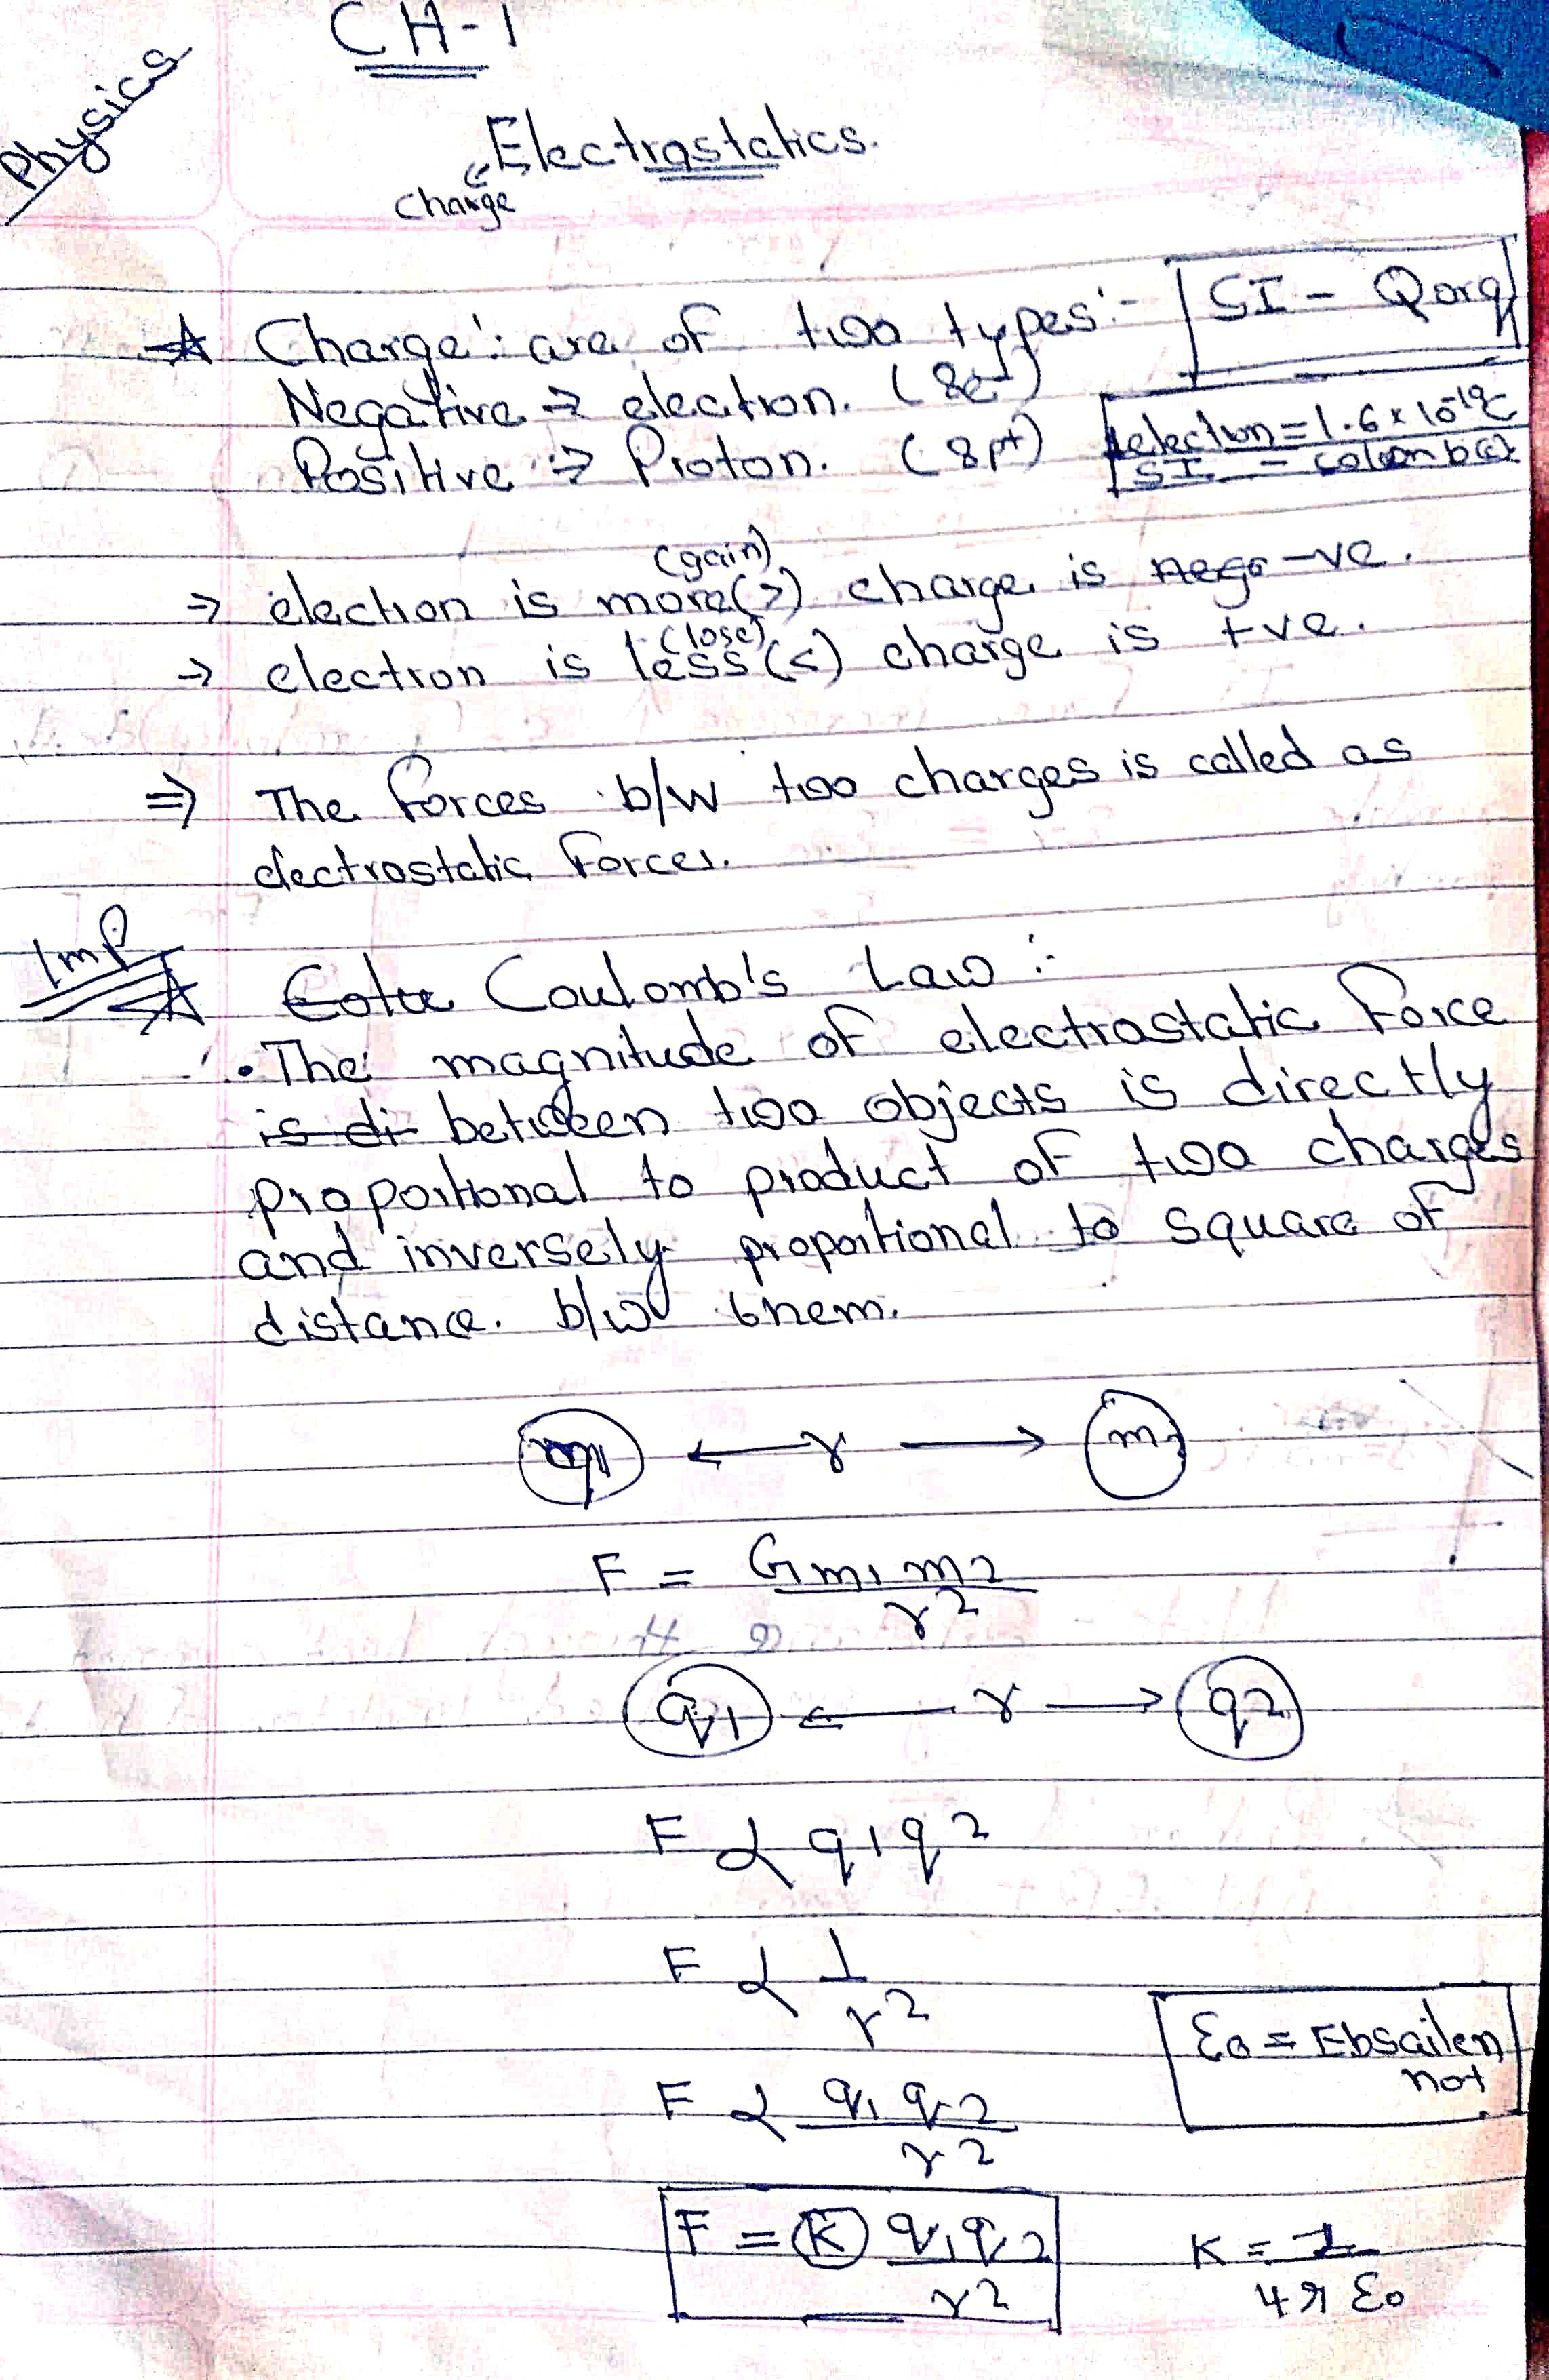 CH-1
Physics
Electrostatics.
Charge
Charge: are of two types:- SI - Q or q
Negative → electron. (8e-)
Positive → Proton. (8p+)
1electron = 1.6 x 10-19C
SI =
→ electron is more(>) (gain) charge is -ve.
→ electron is less(<) (lose) charge is +ve.
⇒ The Forces b/w two charges is called as
electrostatic Forces.
Imp
Coulomb's Law :-
• The magnitude of electrostatic Force
is di between two objects is directly
proportional to product of two charges
and inversely proportional to square of
distance. b/w them.
m1 ← r → m2
F = Gm1m2
r2
q1 ← r → q2
F ∝ q1q2
F ∝ 1
r2
ε0 = Ebsailen
not
F ∝ q1 q2
r2
F = K q1q2
r2
K = 1
4π ε0